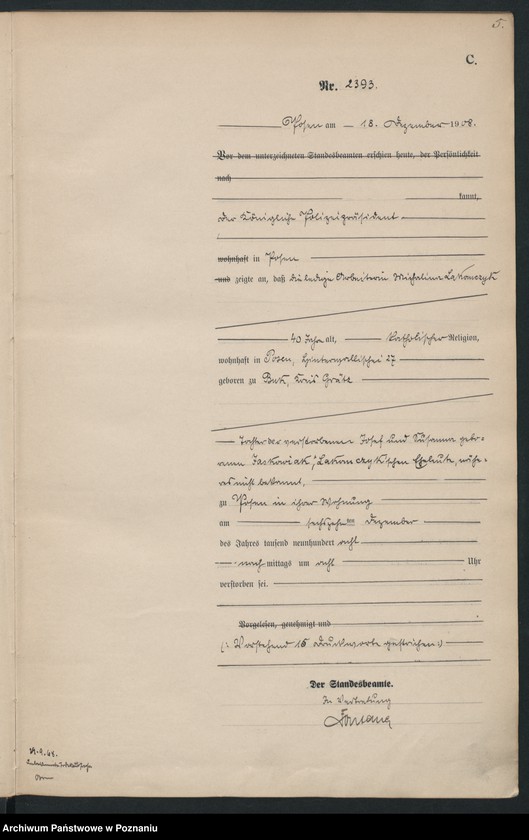 5.
C.
Nr. 2393.
Posen am 18. Dezember 1908.
Vor dem unterzeichneten Standesbeamten erschien heute, der Persönlichkeit
nach
kannt,
der Königliche Polizeipräsident
wohnhaft in Posen
und zeigte an, daß die ledige Arbeiterin Michalina Lakomczyk
40 Jahre alt, katholischer Religion,
wohnhaft in Posen, Hinterwallischei 27
geboren zu Buk, Kreis Grätz
Tochter der verstorbenen Josef und Susanna gebo-
renen Jaskowiak, Lakomczykschen Eheleute, nähe-
res nicht bekannt,
zu Posen in ihrer Wohnung
am sechszehnten Dezember
des Jahres tausend neunhundert acht
nachmittags um acht Uhr
verstorben sei.
Vorgelesen, genehmigt und
(: Vorstehend 15 Druckworte gestrichen:)
Der Standesbeamte.
In Vertretung
Fontane
Archiwum Państwowe w Poznaniu